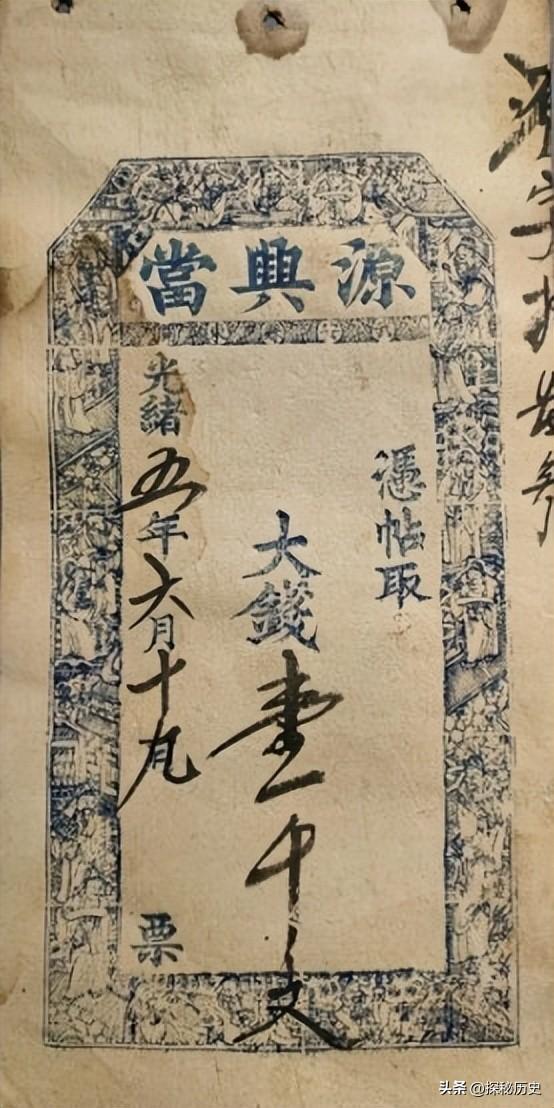 字
源興當
憑帖取
大錢壹千文
光緒五年六月十九日
票
头条 @探秘历史